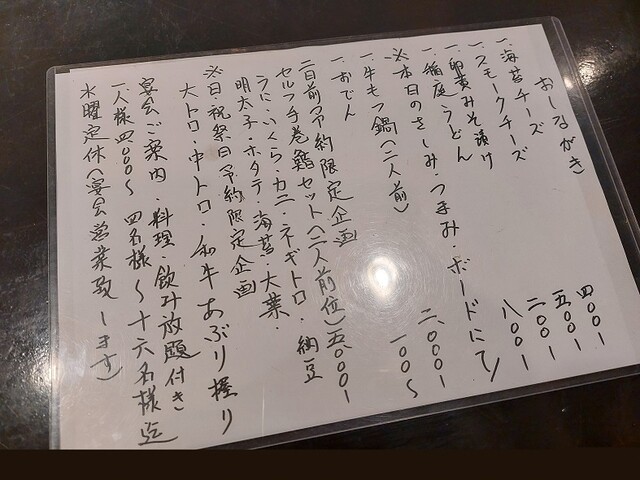 おしながき
一.海苔チーズ 四〇〇ー
一.スモークチーズ 五〇〇ー
一.卵黄みそ漬け 二〇〇ー
一.稲庭うどん 八〇〇ー
※本日のさしみ・つまみ・ボードにて!
一.牛もつ鍋(二人前) 二〇〇〇ー
一.おでん 一〇〇〜
二日前予約限定企画
セルフ手巻鮨セット(二人前位)五〇〇〇ー
うに・いくら・カニ・ネギトロ・納豆
明太子・ホタテ・海苔・大葉・
※日祝祭日予約限定企画
大トロ・中トロ・和牛あぶり握り
宴会ご案内・料理・飲み放題付き
一人様四〇〇〇〜 四名様〜十六名様迄
水曜定休(宴会営業致します)